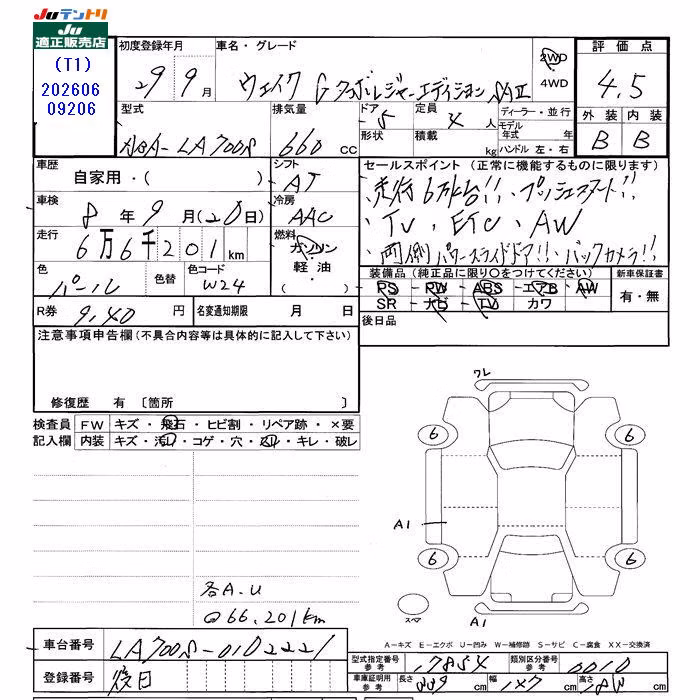 JUテントリ
JU
適正販売店
(T1)
202606
09206
初度登録年月
29年9月
車名・グレード
ウェイク Gターボレジャーエディション SAⅡ
2WD
4WD
評価点
4.5
外装 内装
B B
型式
ABA-LA700S
排気量
660cc
ドア 5
形状
定員 4人
積載 kg
ディーラー・並行
モデル年式 年式
ハンドル 左・右
車歴
自家用・( )
シフト
AT
車検
8年9月(20日)
冷房
AAC
走行
6万6千201km
燃料
ガソリン
軽油・
色
パール
色替
色コード
W24
R券 9,40 円
名変通知期限 月 日
セールスポイント(正常に機能するものに限ります)
走行6万K台!!、プッシュスタート!!
・TV、ETC、AW
・両側パワースライドドア!!、バックカメラ!!
装備品(純正品に限り〇をつけてください)
新車保証書
PS・PW・ABS・エアB・AW
SR・ナビ・TV・カワ
有・無
後日品
注意事項申告欄(不具合内容等は具体的に記入して下さい)
修復歴 有〔箇所 〕
検査員
記入欄
FW キズ・飛石・ヒビ割・リペア跡・×要
内装 キズ・汚れ・コゲ・穴・スレ・キレ・破レ
ワレ
6 6
A1
6 6
スペア
A1
各A.U
@66,201km
A-キズ E-エクボ U-凹み W-補修跡 S-サビ C-腐食 XX-交換済
車台番号 LA700S-0102221
登録番号 後日
型式指定番号 参考 17854
類別区分番号 参考 0010
車庫証明用 参考
長さ 339cm 幅 147cm 高さ cm